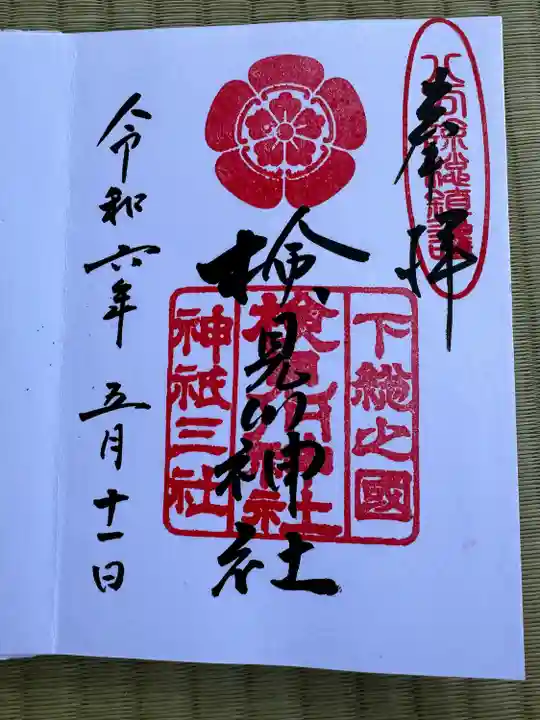 奉拝
八方除総鎮護
下総之國
検見川神社
検見川神社
神祇三社
令和六年 五月十一日